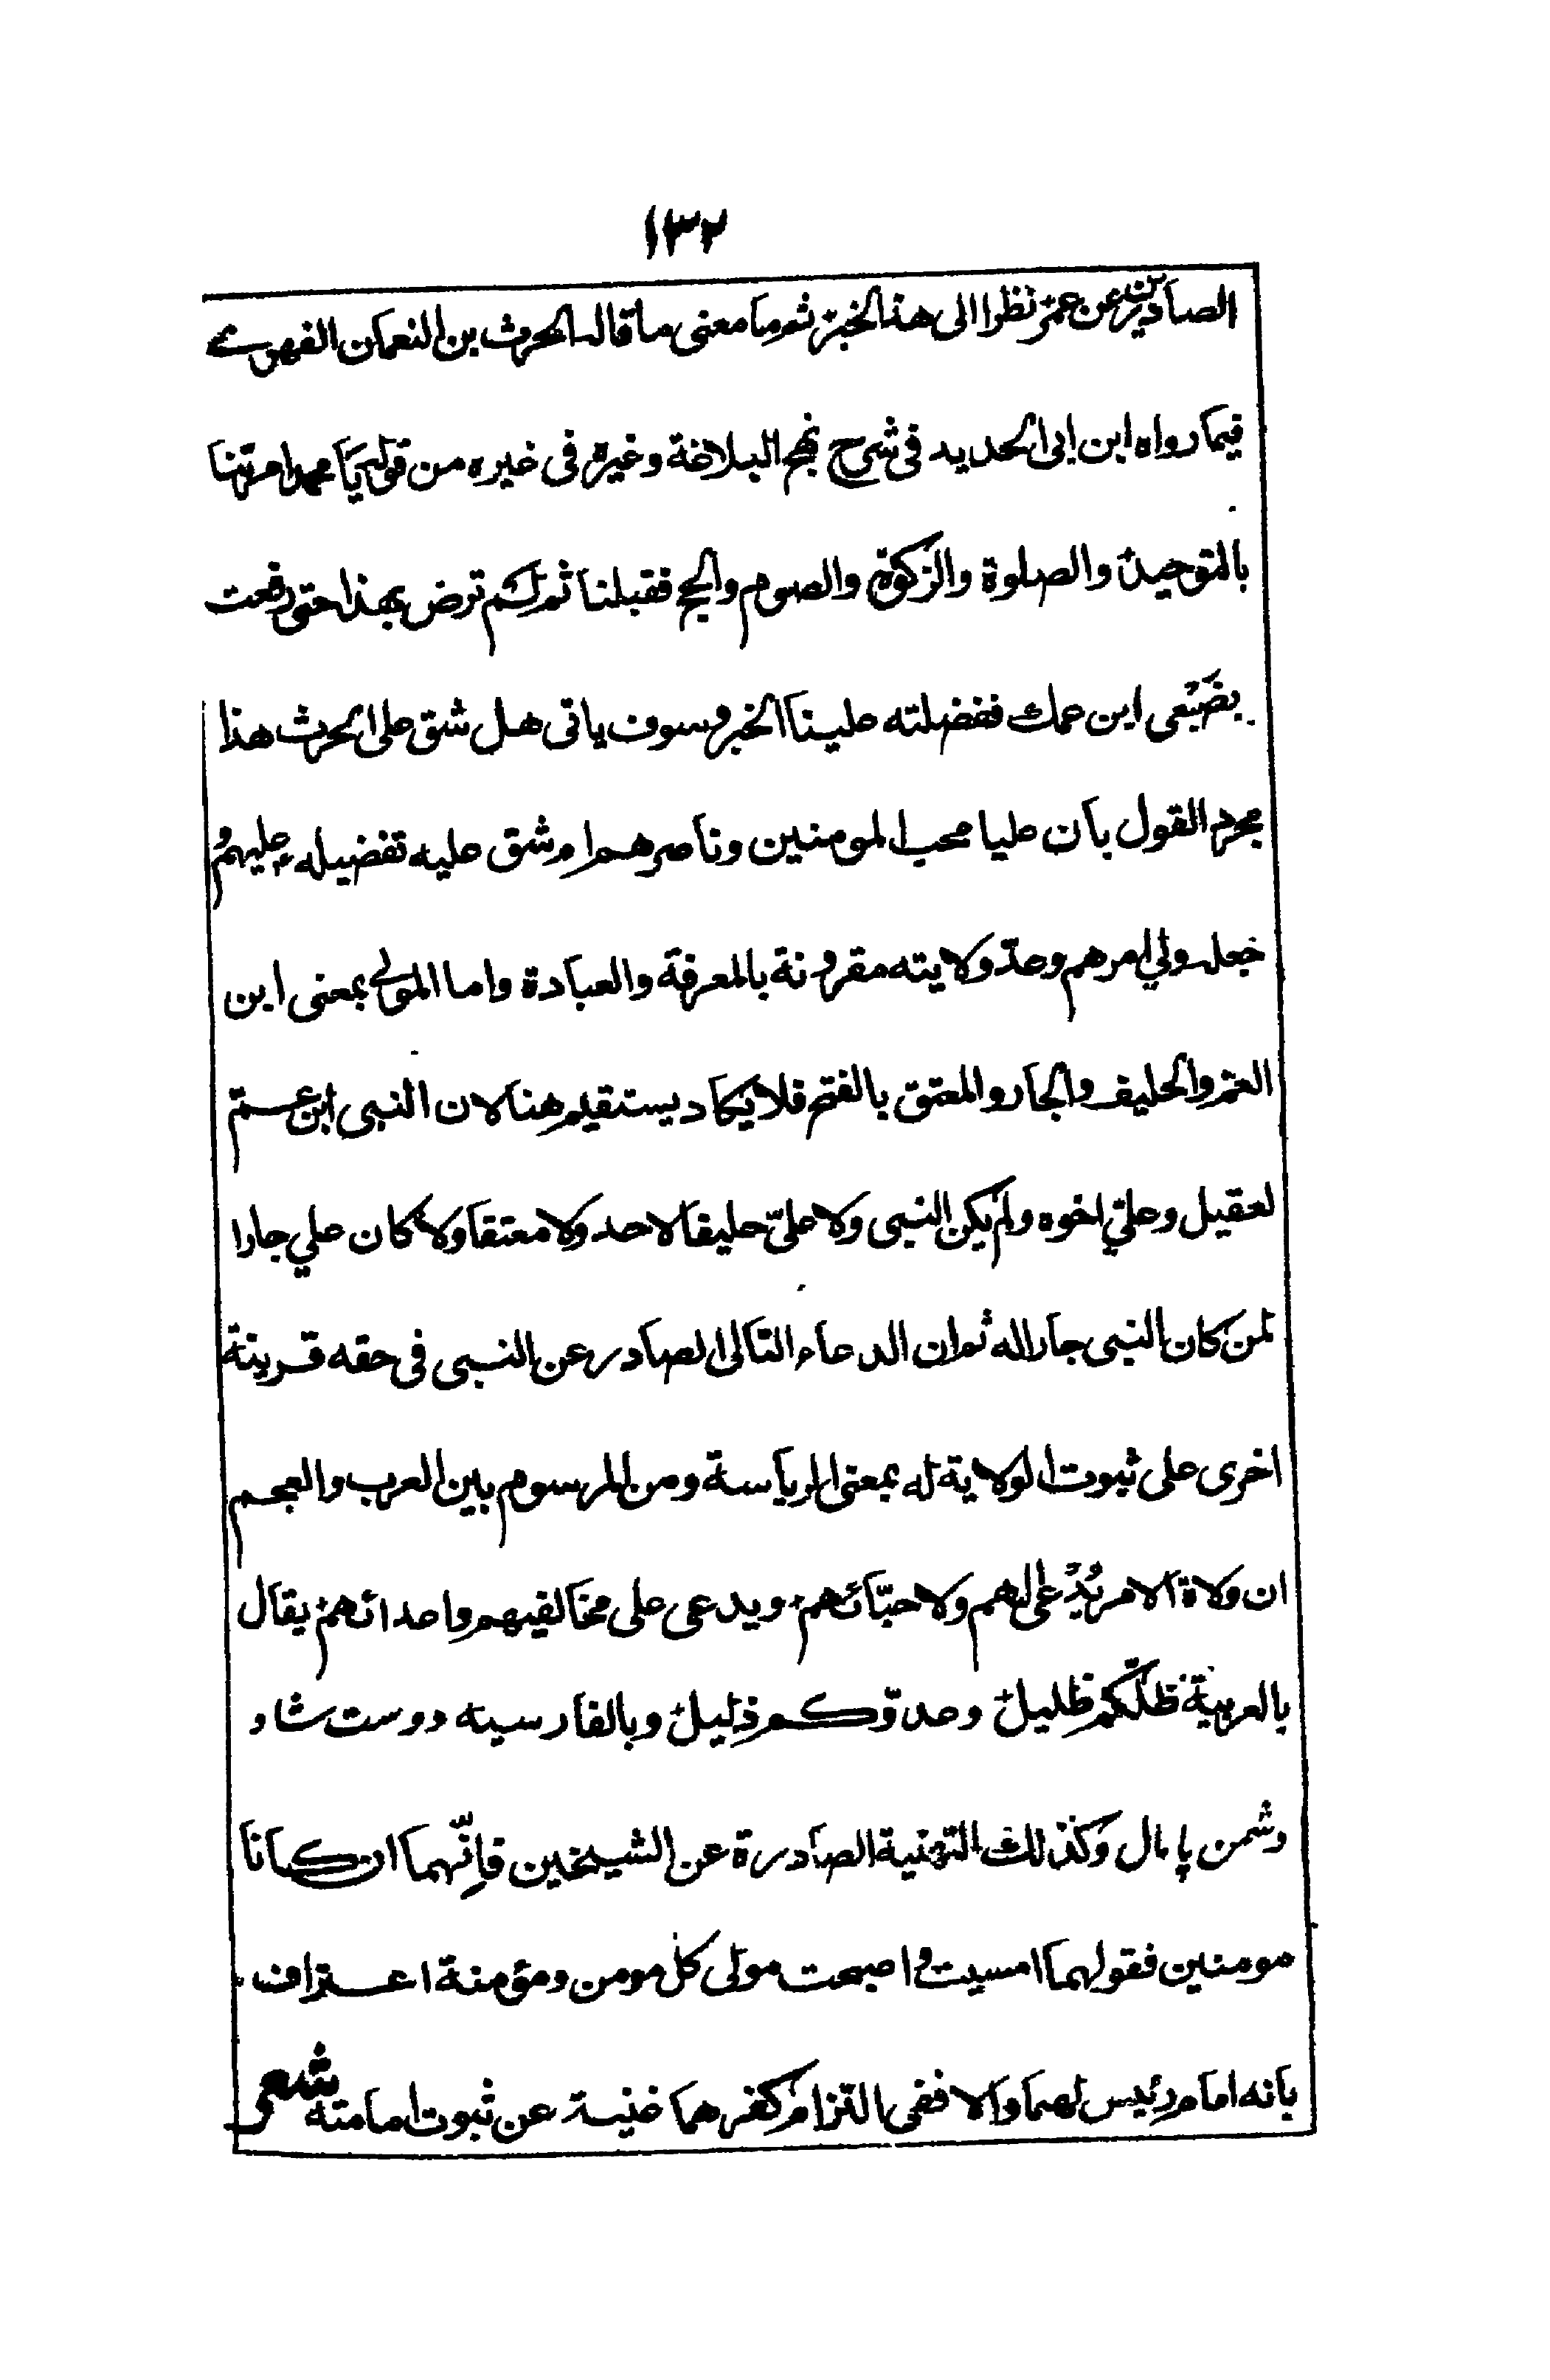 ١٣٢
الصادرين عن عمر نظرا الى هذا الخبر ثم ما معنى ما قاله الحرث بن النعمان الفهري
فيما رواه ابن ابى الحديد فى شرح نهج البلاغة وغيره فى غيره من قوله يا محمد امرتنا
بالتوحيد والصلوة والزكوة والصوم والحج فقبلنا ثم لم ترض بهذا حتى رفعت
بضَبْعى ابن عمك ففضلته علينا الخبر وسوف ياتى هل شق على الحرث هذا
مجرد القول بان عليا محب المومنين وناصرهم ام شق عليه تفضيله عليهم
بجعله ولي امرهم وعدّ ولايته مقرونة بالمعرفة والعبادة واما المولى بمعنى ابن
العم والحليف والجار والمعتق بالفتح فلا يكاد يستقيم هنا لان النبى ابن عم
لعقيل وعليّ اخوه ولم يكن النبى ولا عليّ حليفا لاحد ولا معتقا ولا كان علي جارا
لمن كان النبى جارا له ثم ان الدعاء التالى الصادر عن النبى فى حقه قرينة
اخرى على ثبوت الولاية له بمعنى الرياسة ومن المرسوم بين العرب والعجم
ان ولاة الامر يُدْعى لهم ولاحبّائهم ويدعى على مخالفيهم واعدائهم يقال
بالعربية ظلّكم ظليل وعدوّكم ذليل وبالفارسيه دوست شاد
دشمن پامال وكذلك التهنية الصادرة عن الشيخين فإنّهما ان كانا
مومنين فقولهما امسيت واصبحت مولى كل مومن ومؤمنة اعتراف
بانه امام رئيس لهما والا ففى التزام كفرهما غنية عن ثبوت امامته شعر